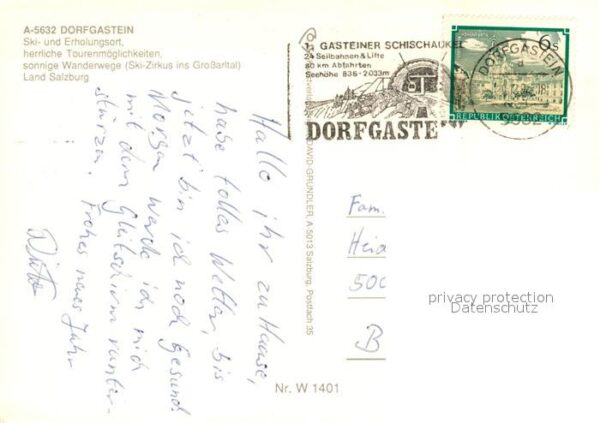 A-5632 DORFGASTEIN
Ski- und Erholungsort,
herrliche Tourenmöglichkeiten,
sonnige Wanderwege (Ski-Zirkus ins Großarltal)
Land Salzburg
GASTEINER SCHISCHAUKEL
24 Seilbahnen & Lifte
80 km Abfahrten
Seehöhe 836-2033m
DORFGASTE
6 S
REPUBLIK ÖSTERREICH
DORFGASTEIN
Hallo ihr zu Hause,
habe tolles Wetter, bis
jetzt bin ich noch gesund.
Morgen werde ich mich
mit dem Gleitschirm runter-
stürzen. Frohes neues Jahr
DAVID GRÜNDLER, A-5013 Salzburg, Postfach 35
Fam.
Heid
500
B
privacy protection
Datenschutz
Nr. W 1401